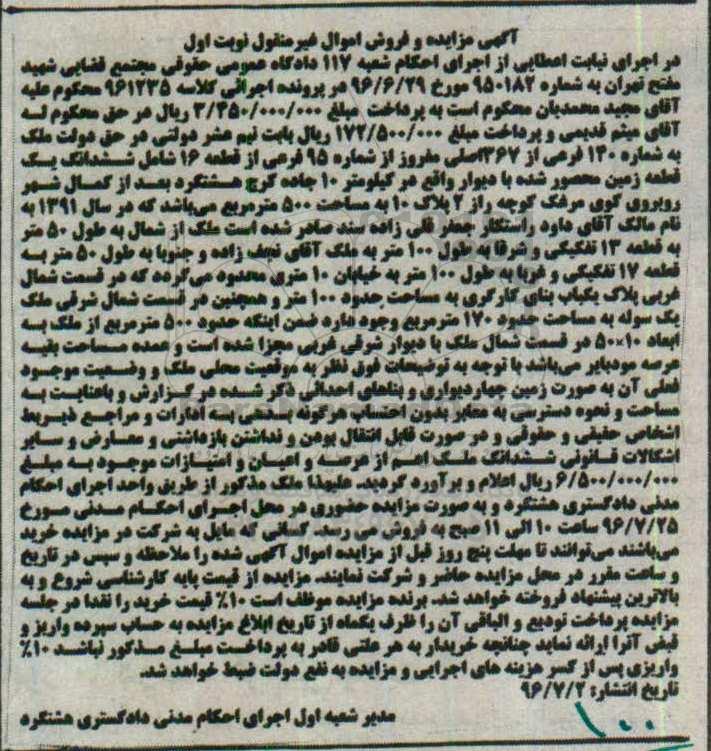 آگهی مزایده و فروش اموال غیرمنقول نوبت اول
در اجرای نیابت اعطایی از اجرای احکام شعبه ۱۱۷ دادگاه عمومی حقوقی مجتمع قضایی شهید
مفتح تهران به شماره ۹۵۰۱۸۲ مورخ ۹۶/۶/۲۹ در پرونده اجرائی کلاسه ۹۶۱۲۳۵ محکوم علیه
آقای مجید محمدیان محکوم است به پرداخت مبلغ ۳/۴۵۰/۰۰۰/۰۰۰ ریال در حق محکوم له
آقای میثم قدیمی و پرداخت مبلغ ۱۷۲/۵۰۰/۰۰۰ ریال بابت نیم عشر دولتی در حق دولت ملک
به شماره ۱۴۰ فرعی از ۳۶۷اصلی مفروز از شماره ۹۵ فرعی از قطعه ۱۶ شامل ششدانگ یک
قطعه زمین محصور شده با دیوار واقع در کیلومتر ۱۰ جاده کرج هشتگرد بعد از کمال شهر
روبروی کوی مرغک کوچه راز ۲ پلاک ۱۰ به مساحت ۵۰۰۰ مترمربع می‌باشد که در سال ۱۳۹۱ به
نام مالک آقای داود راستکار جعفر قلی زاده سند صادر شده است ملک از شمال به طول ۵۰ متر
به قطعه ۱۳ تفکیکی و شرقا به طول ۱۰۰ متر به ملک آقای نجف زاده و جنوبا به طول ۵۰ متر به
قطعه ۱۷ تفکیکی و غربا به طول ۱۰۰ متر به خیابان ۱۰ متری محدود می‌گردد که در قسمت شمال
غربی پلاک یکباب بنای کارگری به مساحت حدود ۱۰۰ متر و همچنین در قسمت شمال شرقی ملک
یک سوله به مساحت حدود ۱۷۰ مترمربع وجود دارد ضمن اینکه حدود ۵۰۰ مترمربع از ملک به
ابعاد ۱۰×۵۰ در قسمت شمال ملک با دیوار شرقی غربی مجزا شده است و عمده مساحت بقیه
عرصه موردبایر می‌باشد با توجه به توضیحات فوق نظر به موقعیت محلی ملک و وضعیت موجود
فعلی آن به صورت زمین چهاردیواری و بناهای احداثی ذکر شده در گزارش و باعنایت به
مساحت و نحوه دسترسی به معابر بدون احتساب هرگونه بدهی به ادارات و مراجع ذیربط
اشخاص حقیقی و حقوقی و در صورت قابل انتقال بودن و نداشتن بازداشتی و معارض و سایر
اشکالات قانونی ششدانگ ملک اعم از عرصه و اعیان و امتیازات موجود به مبلغ
۶/۵۰۰/۰۰۰/۰۰۰ ریال اعلام و برآورد گردید. علیهذا ملک مذکور از طریق واحد اجرای احکام
مدنی دادگستری هشتگرد و به صورت مزایده حضوری در محل اجرای احکام مدنی مورخ
۹۶/۷/۲۵ ساعت ۱۰ الی ۱۱ صبح به فروش می رسد. کسانی که مایل به شرکت در مزایده خرید
می‌باشند می‌توانند تا مهلت پنج روز قبل از مزایده اموال آگهی شده را ملاحظه و سپس در تاریخ
و ساعت مقرر در محل مزایده حاضر و شرکت نمایند. مزایده از قیمت پایه کارشناسی شروع و به
بالاترین پیشنهاد فروخته خواهد شد. برنده مزایده موظف است ۱۰٪ قیمت خرید را نقدا در جلسه
مزایده پرداخت تودیع و الباقی آن را ظرف یکماه از تاریخ ابلاغ مزایده به حساب سپرده واریز و
قبض آنرا ارائه نماید چنانچه خریدار به هر علتی قادر به پرداخت مبلغ مذکور نباشد ۱۰٪
واریزی پس از کسر هزینه های اجرایی و مزایده به نفع دولت ضبط خواهد شد.
تاریخ انتشار: ۹۶/۷/۲
مدیر شعبه اول اجرای احکام مدنی دادگستری هشتگرد
۱۰۰